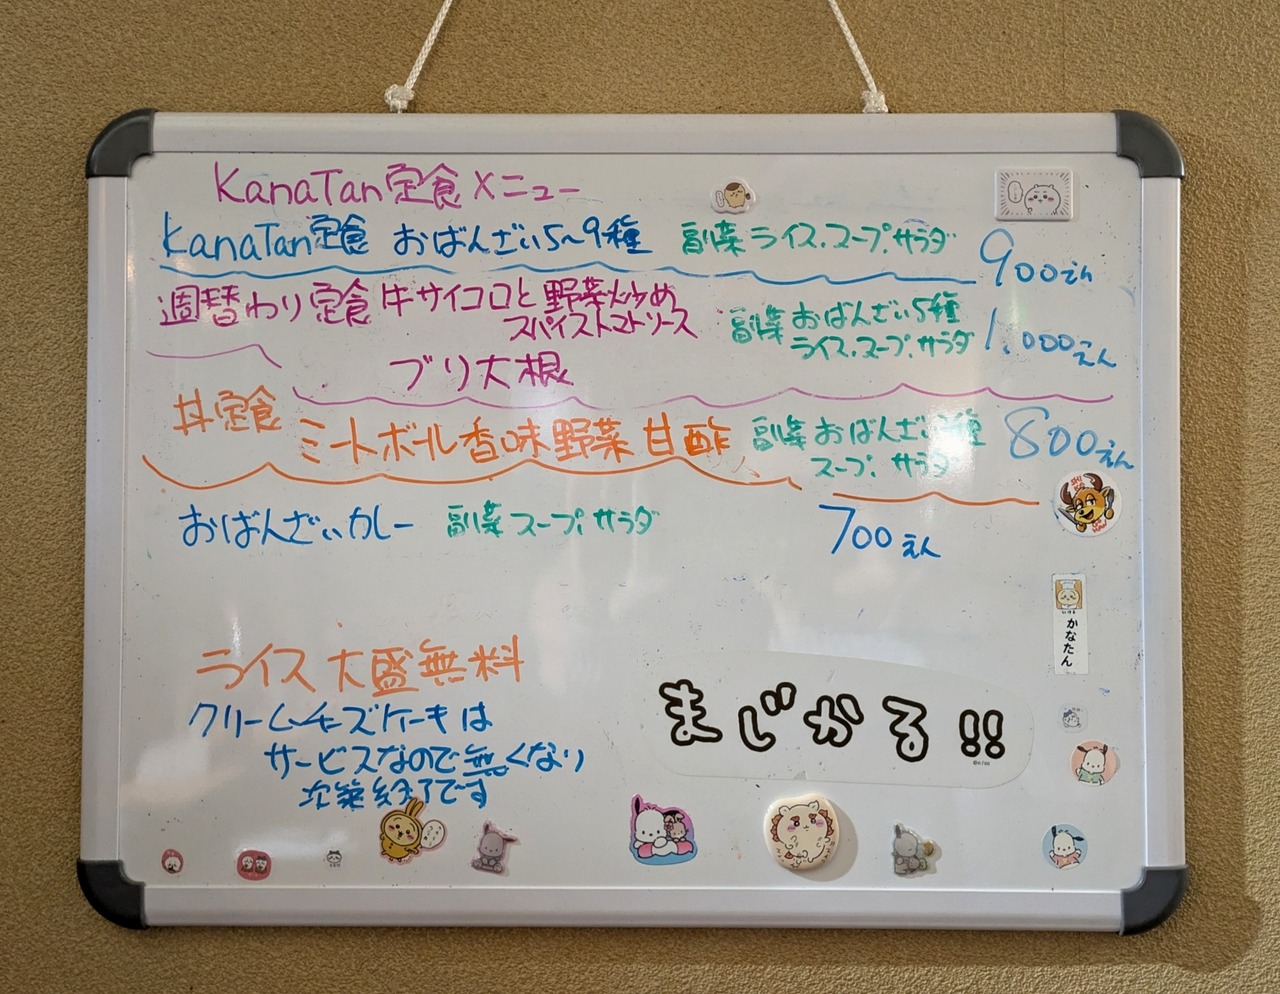 KanaTan定食メニュー
KanaTan定食 おばんざい5〜9種 副菜 ライス.スープ.サラダ 900えん
週替わり定食 牛サイコロと野菜炒め
スパイストマトソース
ブリ大根
副菜 おばんざい5種
ライス.スープ.サラダ
1.000えん
丼定食 ミートボール香味野菜甘酢
副菜 おばんざい 種
スープ.サラダ
800えん
おばんざいカレー 副菜 スープ.サラダ 700えん
ライス大盛無料
クリームチーズケーキは
サービスなので無くなり
次第終了です
まじかる!!
かなたん